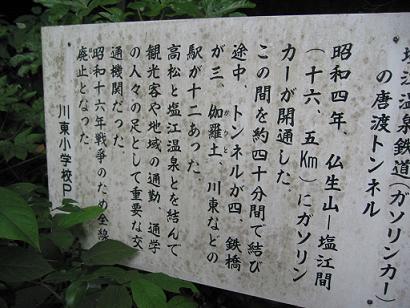 塩江温泉鉄道(ガソリンカー)
の唐渡トンネル
昭和四年、仏生山―塩江間
(十六、五Km)にガソリン
カーが開通した。
この間を約四十分間で結び
途中、トンネルが四、鉄橋
が三 伽羅土、川東などの
駅が十二あった。
高松と塩江温泉とを結んで
観光客や地域の通勤、通学
の人々の足として重要な交
通機関だった。
昭和十六年戦争のため全線
廃止となった。
川東小学校P